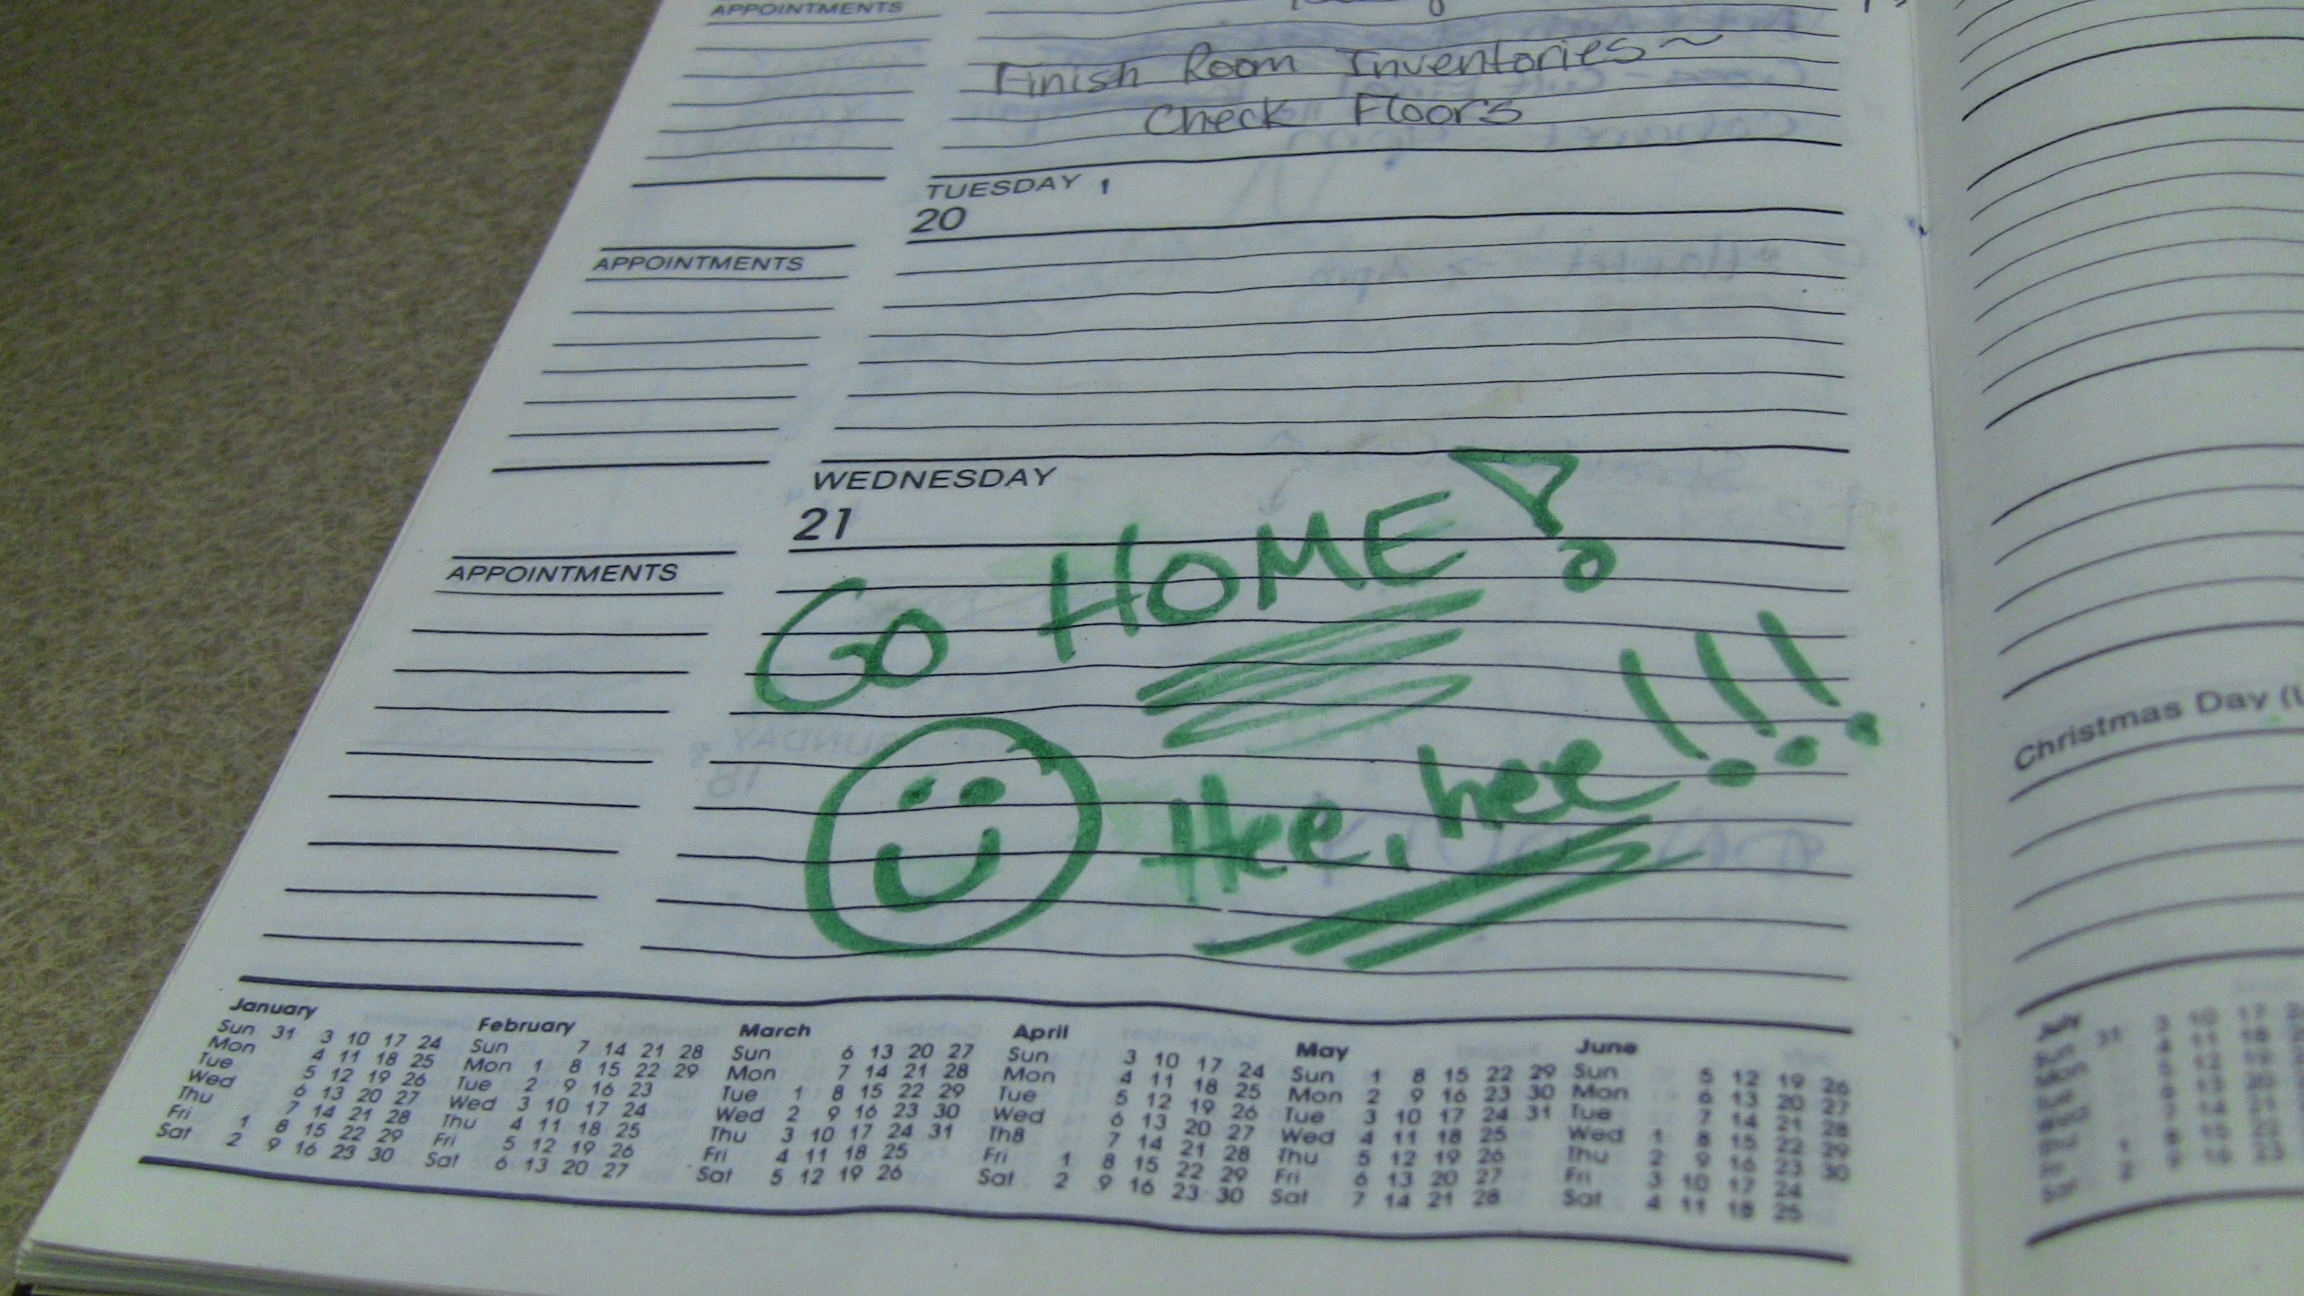 APPOINTMENTS
Finish Room Inventories~
Check Floors
TUESDAY
20
APPOINTMENTS
WEDNESDAY
21
APPOINTMENTS
GO HOME!
Hee, hee!!!
Christmas Day
January
Sun 31 3 10 17 24
Mon 4 11 18 25
Tue 5 12 19 26
Wed 6 13 20 27
Thu 7 14 21 28
Fri 1 8 15 22 29
Sat 2 9 16 23 30
February
Sun 7 14 21 28
Mon 1 8 15 22 29
Tue 2 9 16 23
Wed 3 10 17 24
Thu 4 11 18 25
Fri 5 12 19 26
Sat 6 13 20 27
March
Sun 6 13 20 27
Mon 7 14 21 28
Tue 1 8 15 22 29
Wed 2 9 16 23 30
Thu 3 10 17 24 31
Fri 4 11 18 25
Sat 5 12 19 26
April
Sun 3 10 17 24
Mon 4 11 18 25
Tue 5 12 19 26
Wed 6 13 20 27
Th8 7 14 21 28
Fri 1 8 15 22 29
Sat 2 9 16 23 30
May
Sun 1 8 15 22 29
Mon 2 9 16 23 30
Tue 3 10 17 24 31
Wed 4 11 18 25
Thu 5 12 19 26
Fri 6 13 20 27
Sat 7 14 21 28
June
Sun 5 12 19 26
Mon 6 13 20 27
Tue 7 14 21 28
Wed 1 8 15 22 29
Thu 2 9 16 23 30
Fri 3 10 17 24
Sat 4 11 18 25
July